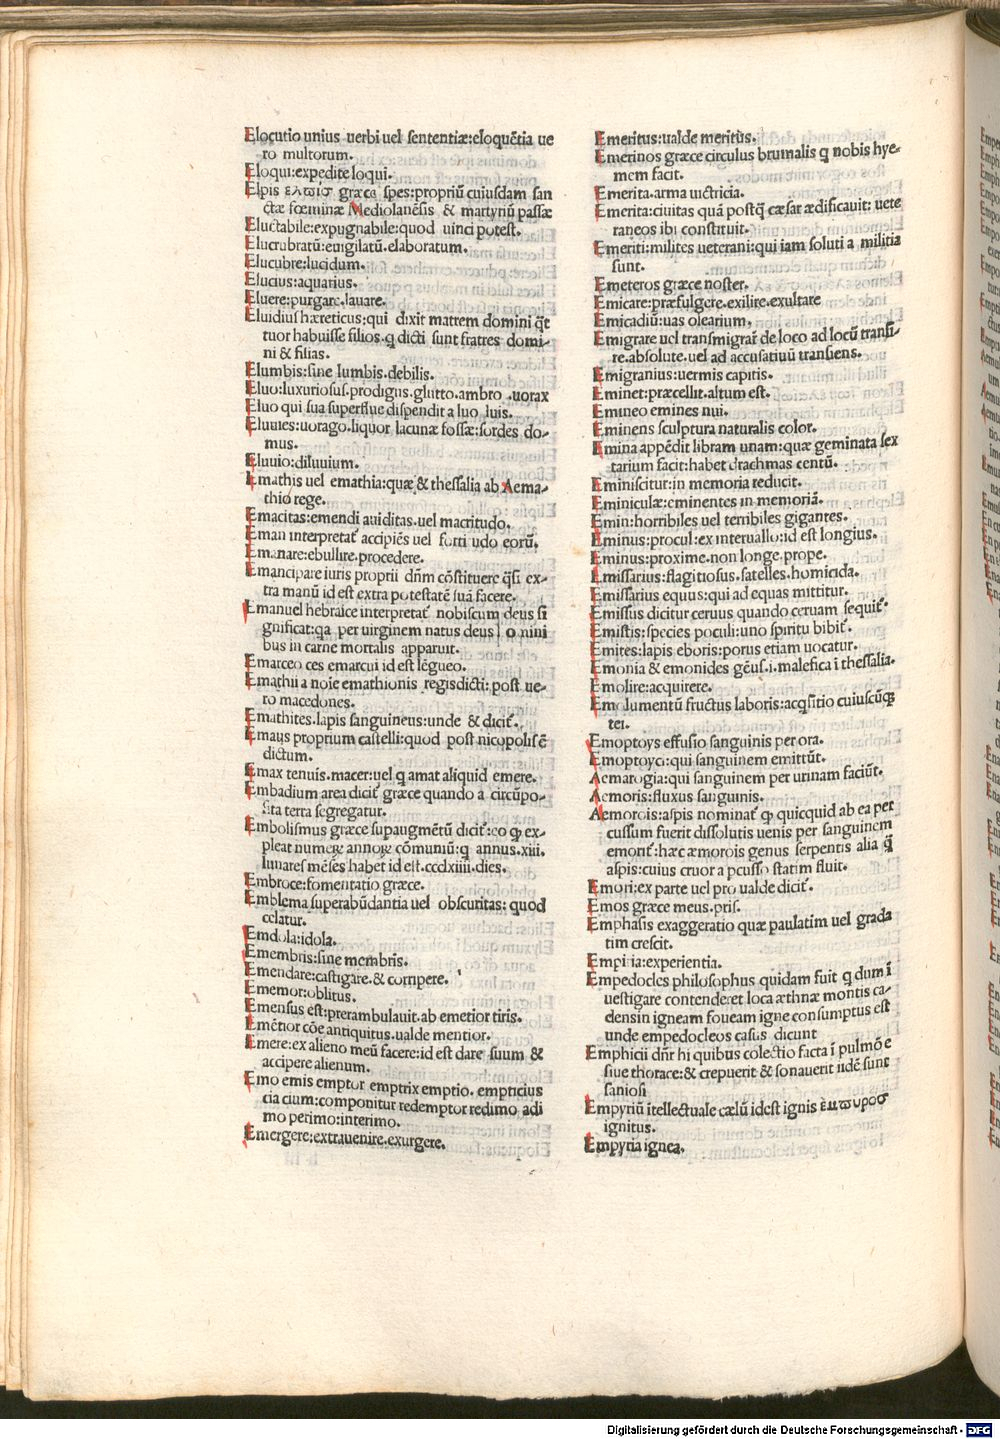 Elocutio unius uerbi uel sententiæ:eloquẽtia ue
ro multorum.
Eloqui:expedite loqui.
Elpis ελωισ græca spes:propriũ cuiusdam san
ctæ fœminæ Mediolanẽsis & martyriũ passæ
Eluctabile:expugnabile:quod uinci potest.
Elucubratũ:euigilatũ.elaboratum.
Elucubre:lucidum.
Elucius:aquarius.
Eluere:purgare.lauare.
Eluidius hæreticus:qui dixit matrem domini q̃t
tuor habuisse filios.q dicti sunt fratres domi-
ni & filias.
Elumbis:sine lumbis.debilis.
Eluo:luxuriosus.prodigus.glutto.ambro .uorax
Eluo qui sua superflue dispendit a luo luis.
Eluuies:uorago.liquor lacunæ fossæ:sordes do-
mus.
Eluuio:diluuium.
Emathis uel emathia:quæ & thessalia ab Aema-
thio rege.
Emacitas:emendi auiditas.uel macritudo.
Eman interpretat̃ accipiẽs uel forti udo eorũ.
Emanare:ebullire.procedere.
Emancipare iuris proprii dñm cõstituere q̃si ex-
tra manũ id est extra potestatẽ suã facere.
Emanuel hebraice interpretat̃ nobiscum deus si
gnificat:qa per uirginem natus deus o nini
bus in carne mortalis apparuit.
Emarceo ces emarcui id est lẽgueo.
Emathii a noie emathionis regis dicti: post ue-
ro macedones.
Emathites.lapis sanguineus:unde & dicit̃.
Emaus proprium castelli:quod post nicopolis ẽ
dictum.
Emax tenuis.macer:uel q amat aliquid emere.
Embadium area dicit̃ græce quando a circũpo-
sita terra segregatur.
Embolismus græce supaugmẽtũ dicit̃:eo ꝙ ex-
pleat numeꝝ annoꝝ cõmuniũ:q annus.xiii.
lunares mẽses habet id est.ccclxxxiiii.dies.
Embroce:fomentatio græce.
Emblema superabũdantia uel obscuritas: quod
celatur.
Emdola:idola.
Emembris:sine membris.
Emendare:castigare.& compere.
Ememor:oblitus.
Emensus est:prerambulauit.ab emetior tiris.
Emẽtior cõe antiquitus.ualde mentior.
Emere:ex alieno meũ facere:id est dare suum &
accipere alienum.
Emo emis emptor emptrix emptio. empticius
cia cium:componitur redemptor redimo adi
mo perimo:interimo.
Emergere:extrauenire.exurgere.
Emeritus:ualde meritus.
Emerinos græce circulus brumalis q nobis hye-
mem facit.
Emerita.arma uictricia.
Emerita:ciuitas quã postq̃ cæsar ædificauit: uete
raneos ibi constituit.
Emeriti:milites ueterani:qui iam soluti a militia
sunt.
Emeteros græce noster.
Emicare:præfulgere.exilire.exultare
Emicadiũ:uas olearium.
Emigrare uel transmigrar̃ de loco ad locũ transi-
re.absolute.uel ad accusatiuũ transiens.
Emigranius:uermis capitis.
Eminet:præcellit.altum est.
Emineo emines nui.
Eminens sculptura naturalis color.
Emina appẽdit libram unam:quæ geminata sex
tarium facit:habet drachmas centũ.
Eminiscitur:in memoria reducit.
Eminiculæ:eminentes in memoriã.
Emin:horribiles uel terribiles gigantes.
Eminus:procul:ex interuallo:id est longius.
Eminus:proxime.non longe.prope.
Emissarius:flagitiosus.satelles.homicida.
Emissarius equus:qui ad equas mittitur.
Emissus dicitur ceruus quando ceruam sequit̃.
Emistis:species poculi:uno spiritu bibit̃.
Emites:lapis eboris:porus etiam uocatur.
Emonia & emonides gẽus.i.malefica ĩ thessalia.
Emolire:acquirere.
Emolumentũ fructus laboris:acqsitio cuiuscũqꝫ
rei.
Emoptoys effusio sanguinis per ora.
Emoptoyci:qui sanguinem emittũt.
Aemarogia:qui sanguinem per urinam faciũt.
Aemoris:fluxus sanguinis.
Aemorois:aspis nominat̃ ꝙ quicquid ab ea per
cussum fuerit dissolutis uenis per sanguinem
emorit̃:hæc æmorois genus serpentis alia q̃
aspis:cuius cruor a pcusso statim fluit.
Emori:ex parte uel pro ualde dicit̃.
Emos græce meus.pris.
Emphasis exaggeratio quæ paulatim uel grada
tim crescit.
Empiria:experientia.
Empedocles philosophus quidam fuit q dum ĩ
uestigare contenderet loca æthnæ montis ca-
densin igneam foueam igne consumptus est
unde empedocleos casus dicunt
Emphicii dñr hi quibus colectio facta ĩ pulmõe
siue thorace:& crepuerit & sonauerit iidẽ sunt
saniosi
Empyriũ itellectuale cælũ idest ignis ἐμωυροσ
ignitus.
Empyria ignea.
Digitalisierung gefördert durch die Deutsche Forschungsgemeinschaft - DFG